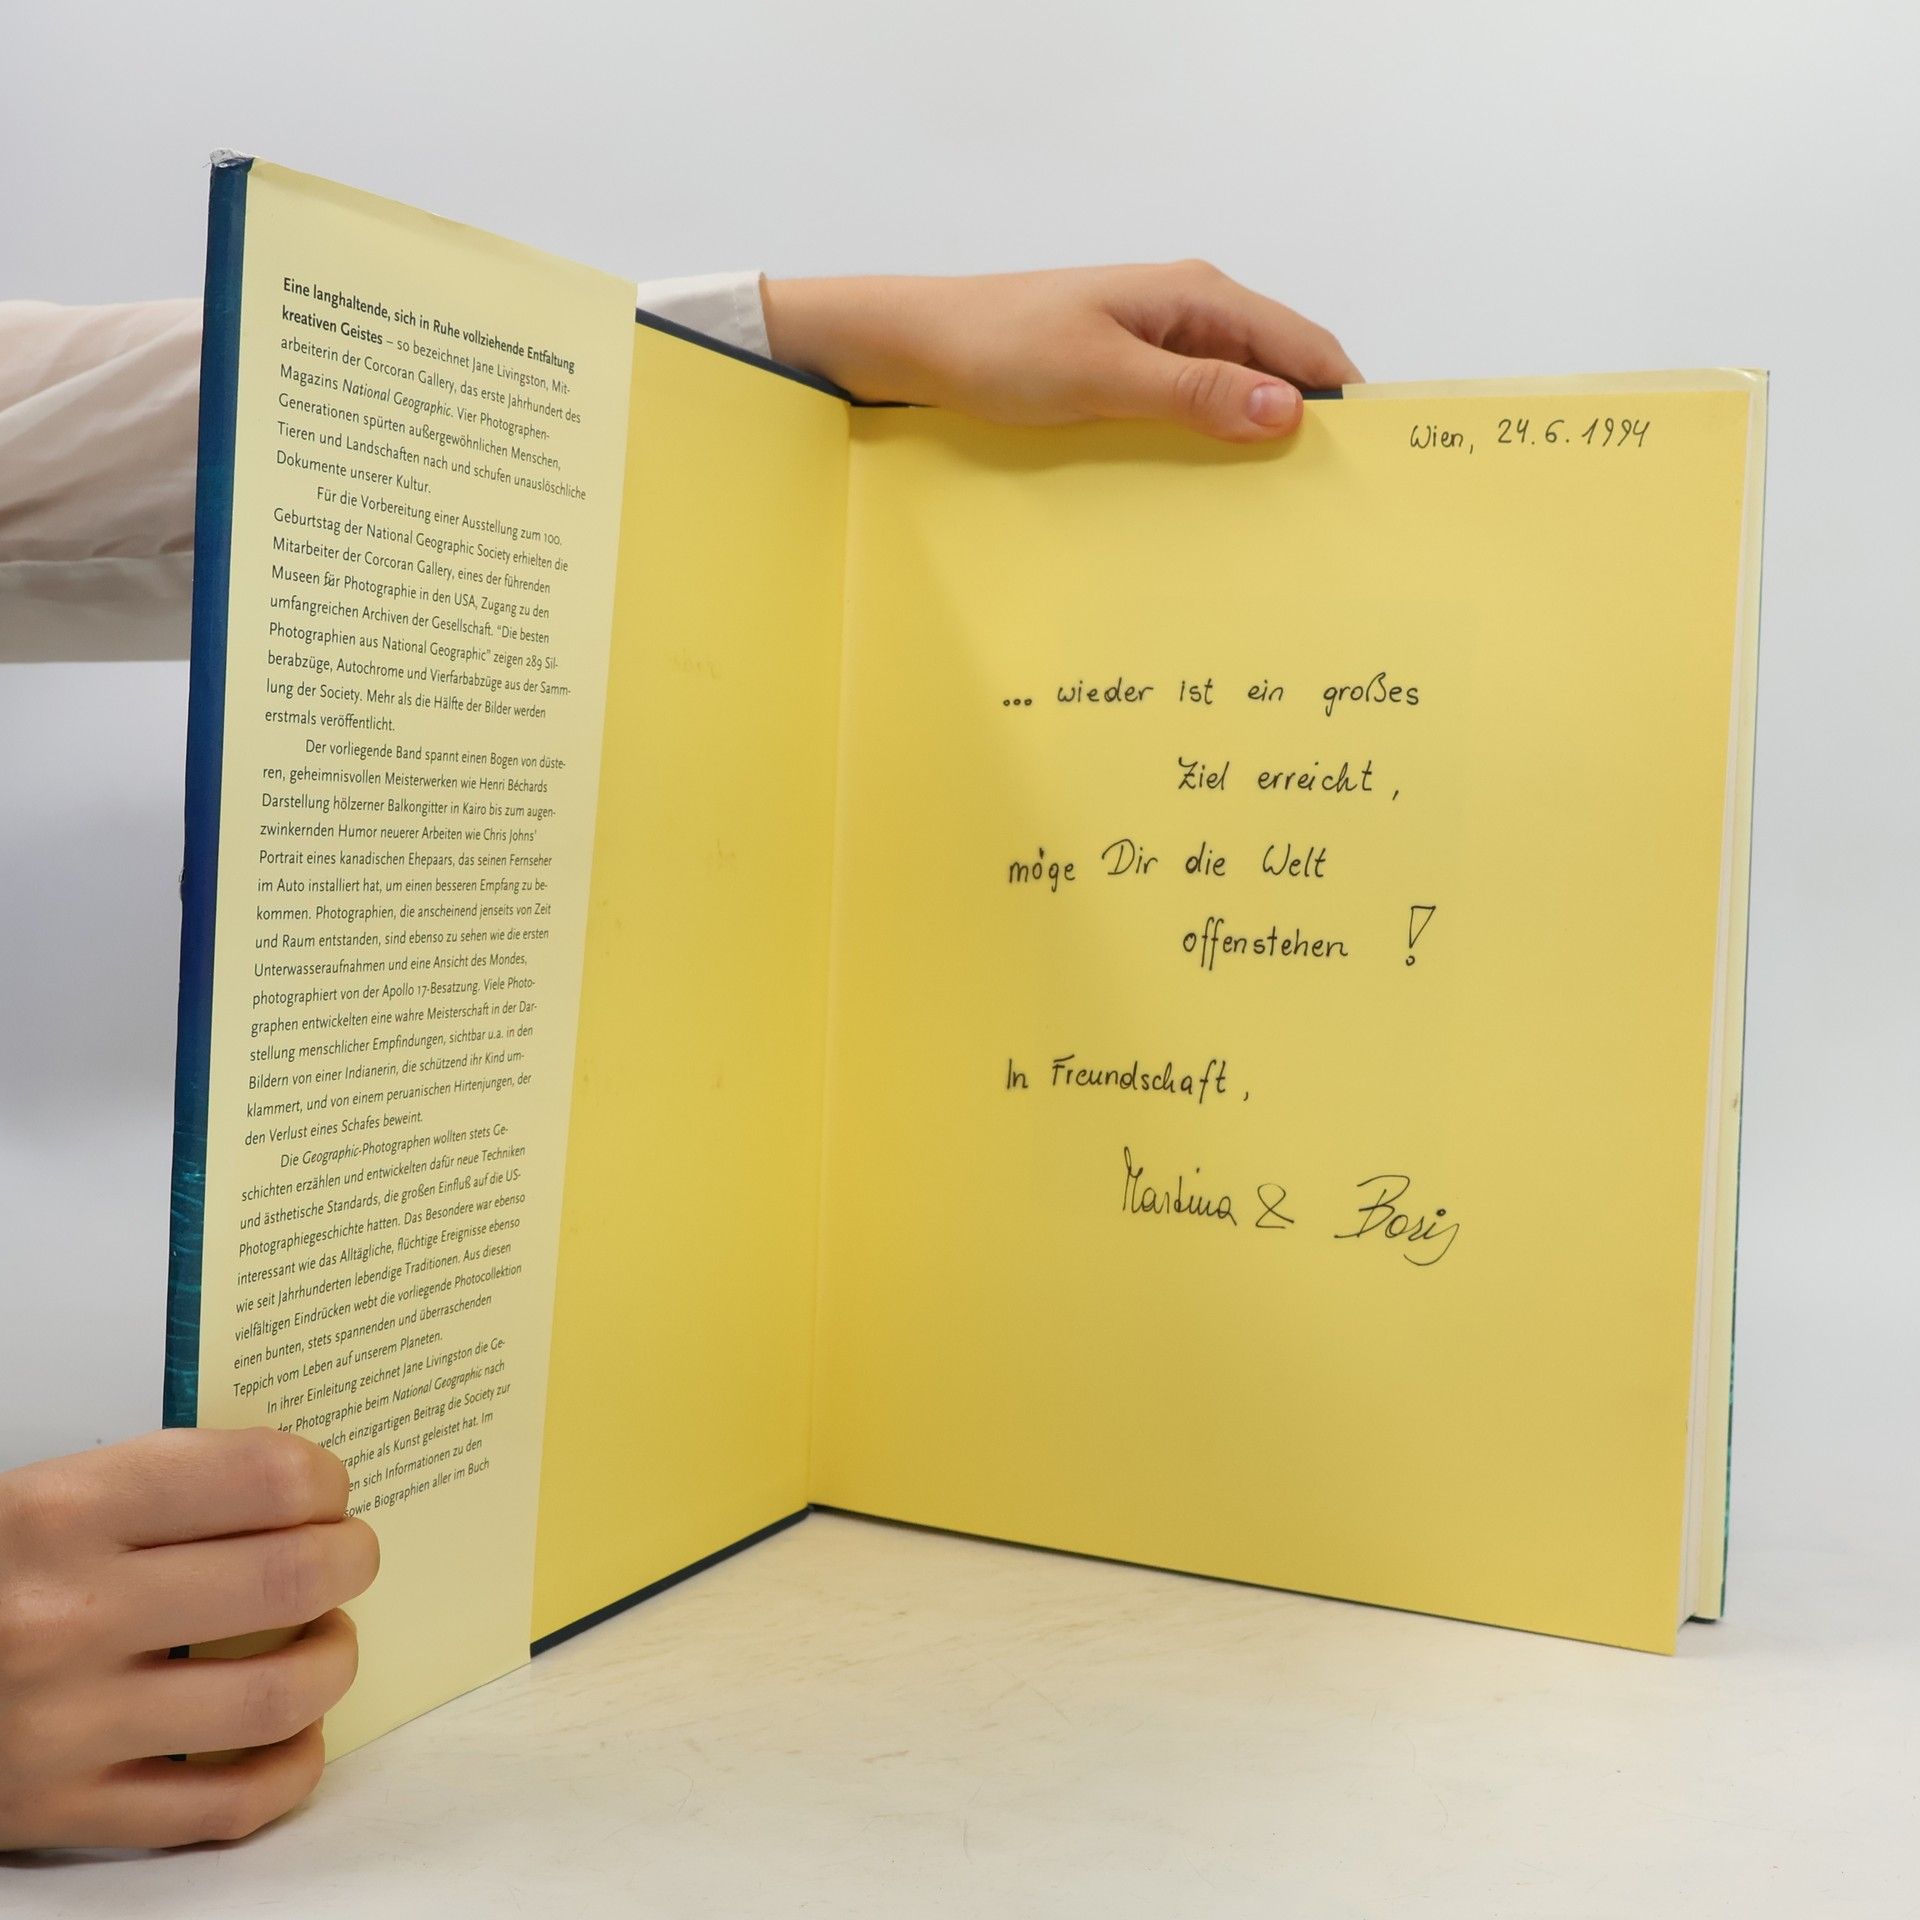 Eine langhaltende, sich in Ruhe vollziehende Entfaltung
kreativen Geistes – so bezeichnet Jane Livingston, Mit-
arbeiterin der Corcoran Gallery, das erste Jahrhundert des
Magazins National Geographic. Vier Photographen-
Generationen spürten außergewöhnlichen Menschen,
Tieren und Landschaften nach und schufen unauslöschliche
Dokumente unserer Kultur.
Für die Vorbereitung einer Ausstellung zum 100.
Geburtstag der National Geographic Society erhielten die
Mitarbeiter der Corcoran Gallery, eines der führenden
Museen für Photographie in den USA, Zugang zu den
umfangreichen Archiven der Gesellschaft. "Die besten
Photographien aus National Geographic" zeigen 289 Sil-
berabzüge, Autochrome und Vierfarbabzüge aus der Samm-
lung der Society. Mehr als die Hälfte der Bilder werden
erstmals veröffentlicht.
Der vorliegende Band spannt einen Bogen von düste-
ren, geheimnisvollen Meisterwerken wie Henri Béchards
Darstellung hölzerner Balkongitter in Kairo bis zum augen-
zwinkernden Humor neuerer Arbeiten wie Chris Johns'
Portrait eines kanadischen Ehepaars, das seinen Fernseher
im Auto installiert hat, um einen besseren Empfang zu be-
kommen. Photographien, die anscheinend jenseits von Zeit
und Raum entstanden, sind ebenso zu sehen wie die ersten
Unterwasseraufnahmen und eine Ansicht des Mondes,
photographiert von der Apollo 17-Besatzung. Viele Photo-
graphen entwickelten eine wahre Meisterschaft in der Dar-
stellung menschlicher Empfindungen, sichtbar u.a. in den
Bildern von einer Indianerin, die schützend ihr Kind um-
klammert, und von einem peruanischen Hirtenjungen, der
den Verlust eines Schafes beweint.
Die Geographic-Photographen wollten stets Ge-
schichten erzählen und entwickelten dafür neue Techniken
und ästhetische Standards, die großen Einfluß auf die US-
Photographiegeschichte hatten. Das Besondere war ebenso
interessant wie das Alltägliche, flüchtige Ereignisse ebenso
wie seit Jahrhunderten lebendige Traditionen. Aus diesen
vielfältigen Eindrücken webt die vorliegende Photocollektion
einen bunten, stets spannenden und überraschenden
Teppich vom Leben auf unserem Planeten.
In ihrer Einleitung zeichnet Jane Livingston die Ge-
der Photographie beim National Geographic nach
welch einzigartigen Beitrag die Society zur
graphie als Kunst geleistet hat. Im
en sich Informationen zu den
sowie Biographien aller im Buch
Wien, 24.6.1994
... wieder ist ein großes
Ziel erreicht,
möge Dir die Welt
offenstehen !
In Freundschaft,
Martina & Boris